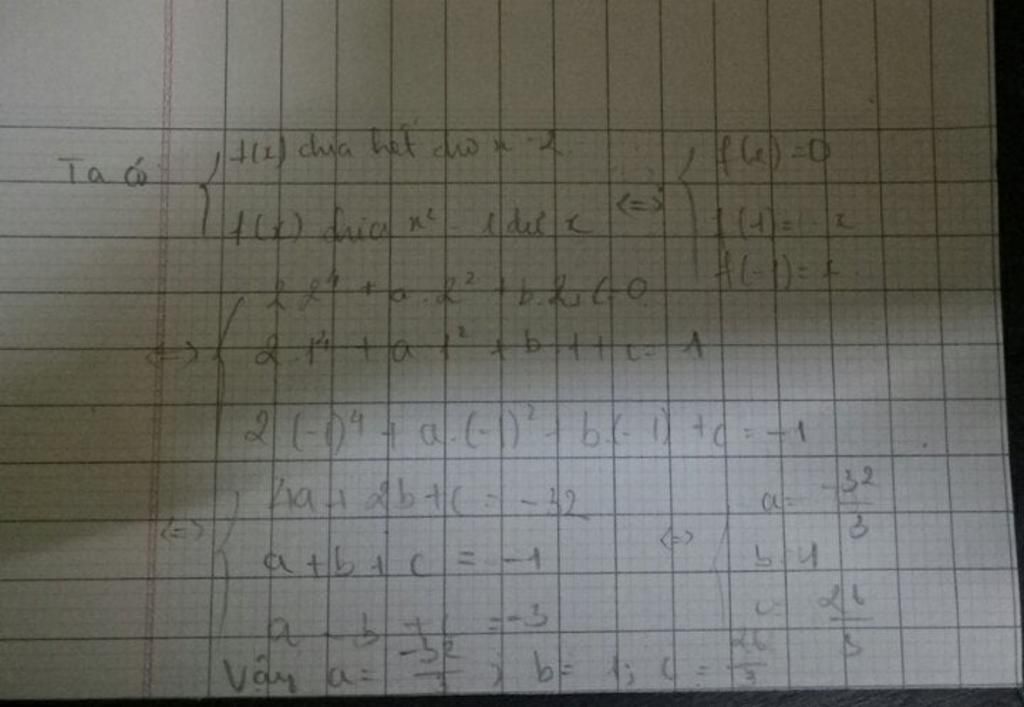 Ta có { f(x) chia hết cho x - 2 <=> { f(2) = 0
f(x) chia x² - 1 dư x
f(1) =
f(-1) =
2.2⁴ + a.2² + b.2 + c = 0
<=> { 2.1⁴ + a.1² + b.1 + c = 1
2.(-1)⁴ + a.(-1)² + b(-1) + c = -1
<=> { 4a + 2b + c = -32 <=> { a = -32/3
a + b + c = -1
b = 1
a - b + c = -3
c = 26/3
Vậy a = -32/3; b = 1; c = 26/3